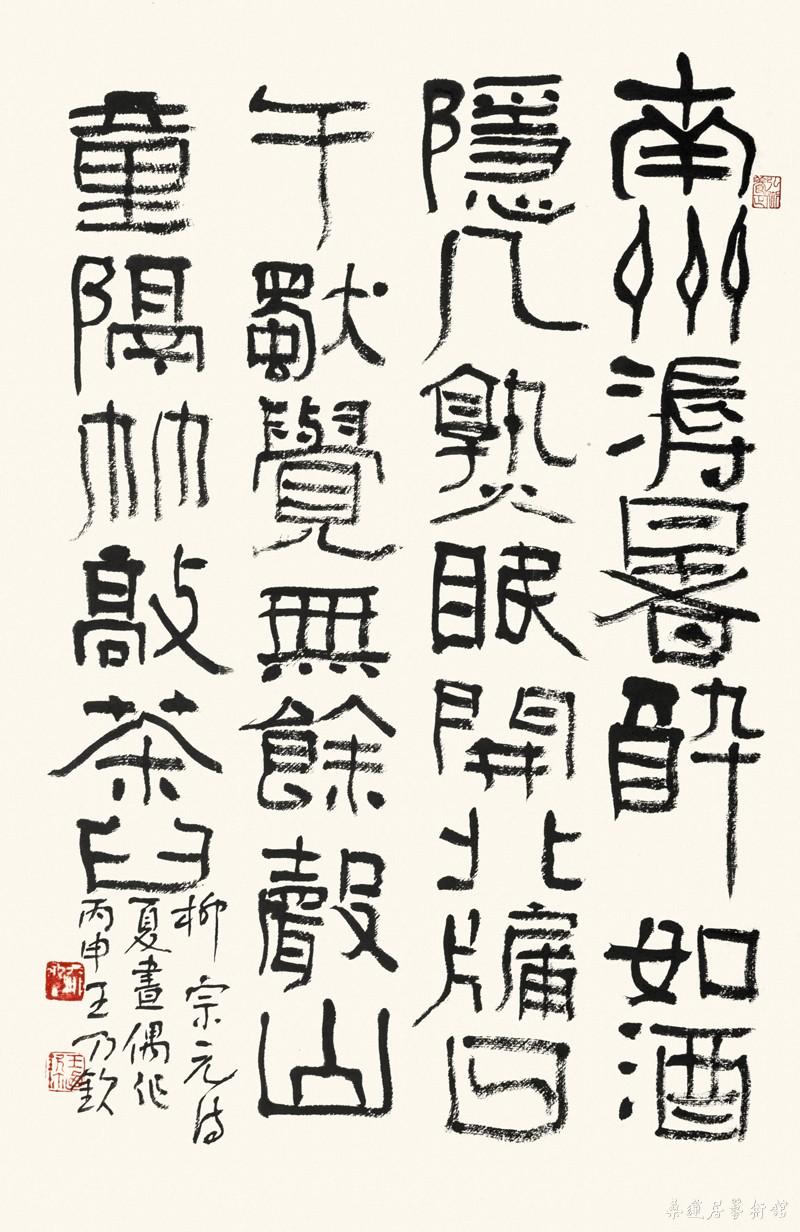 南州溽暑醉如酒
隱几熟眠開北牖日
午獨覺無餘聲山
童隔竹敲茶臼
柳宗元詩
夏晝偶作
丙申王乃欽
居藝術館